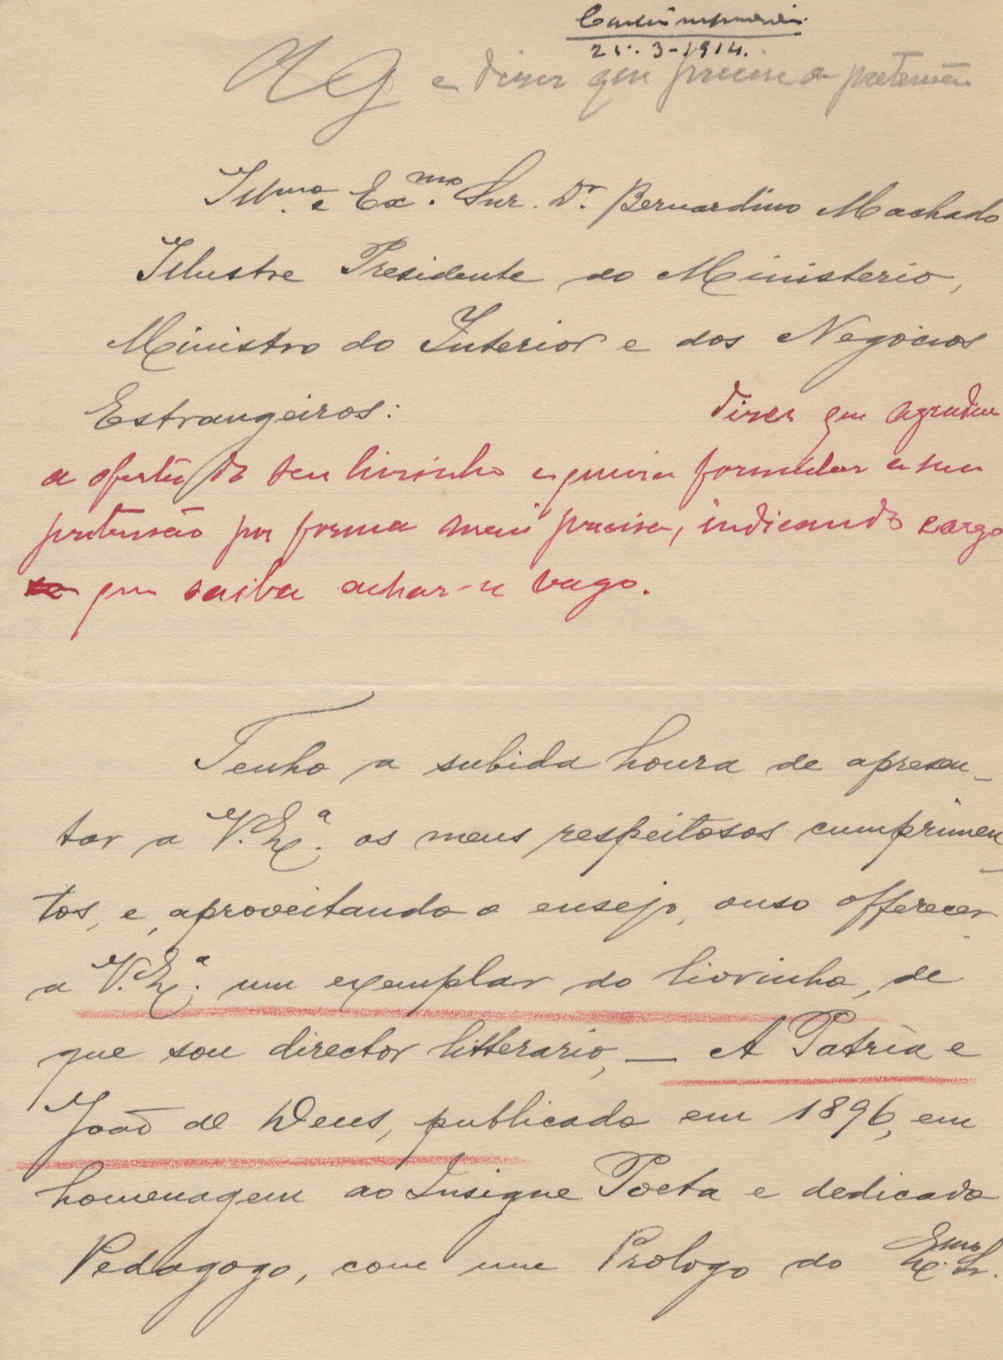 21-3-1914.
AG e dizer que precise a pretensão
Illmo. e Exmo. Snr. Dr. Bernardino Machado
Illustre Presidente do Ministerio,
Ministro do Interior e dos Negocios
Estrangeiros:
dizer que agradeceu
a oferta do seu livrinho e queira formular a sua
pretensão por forma mais precisa, indicando cargo
que saiba achar-se vago.
Tenho a subida honra de apresen-
tar a V. Exa. os meus respeitosos cumprimen-
tos, e, aproveitando o ensejo, ouso offerecer
a V. Exa. um exemplar do livrinho, de
que sou director litterario, — A Patria e
João de Deus, publicado em 1896, em
homenagem ao Insigne Poeta e dedicado
Pedagogo, com um Prologo do Exmo. Sr.